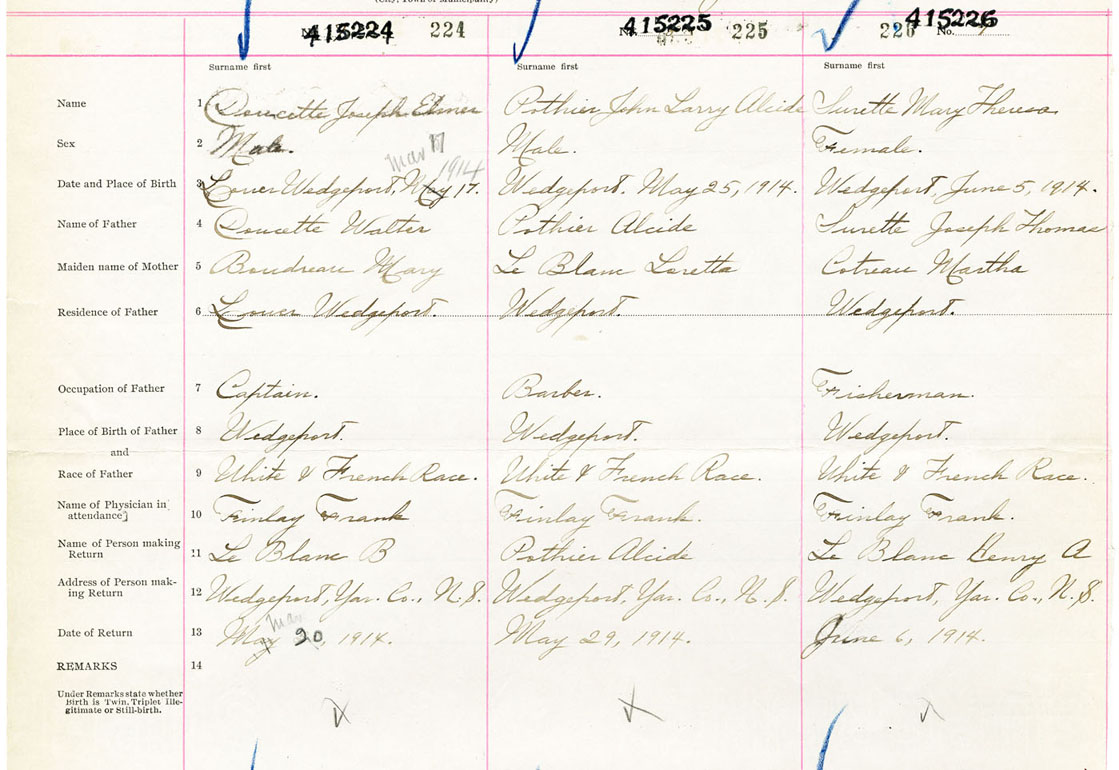 (City, Town or Municipality)
415224 224 No. 415225 225 226 415226 No.
Surname first Surname first Surname first
Name 1 Doucette Joseph Elmer Pothier John Larry Alcide Surette Mary Theresa
Sex 2 Male. Male. Female.
Mar 17 1914
Date and Place of Birth 3 Lower Wedgeport, May 17. Wedgeport. May 25, 1914. Wedgeport, June 5, 1914.
Name of Father 4 Doucette Walter Pothier Alcide Surette Joseph Thomas
Maiden name of Mother 5 Boudreau Mary Le Blanc Loretta Cotreau Martha
Residence of Father 6 Lower Wedgeport. Wedgeport. Wedgeport.
Occupation of Father 7 Captain. Barber. Fisherman.
Place of Birth of Father 8 Wedgeport. Wedgeport. Wedgeport.
and
Race of Father 9 White & French Race. White & French Race. White & French Race.
Name of Physician in
attendance 10 Finlay Frank Finlay Frank. Finlay Frank.
Name of Person making
Return 11 Le Blanc B Pothier Alcide Le Blanc Henry A
Address of Person mak-
ing Return 12 Wedgeport, Yar. Co., N.S. Wedgeport, Yar. Co., N.S. Wedgeport, Yar. Co., N.S.
Mar
Date of Return 13 May 20, 1914. May 29, 1914. June 6, 1914.
REMARKS 14
Under Remarks state whether
Birth is Twin, Triplet Ille-
gitimate or Still-birth.